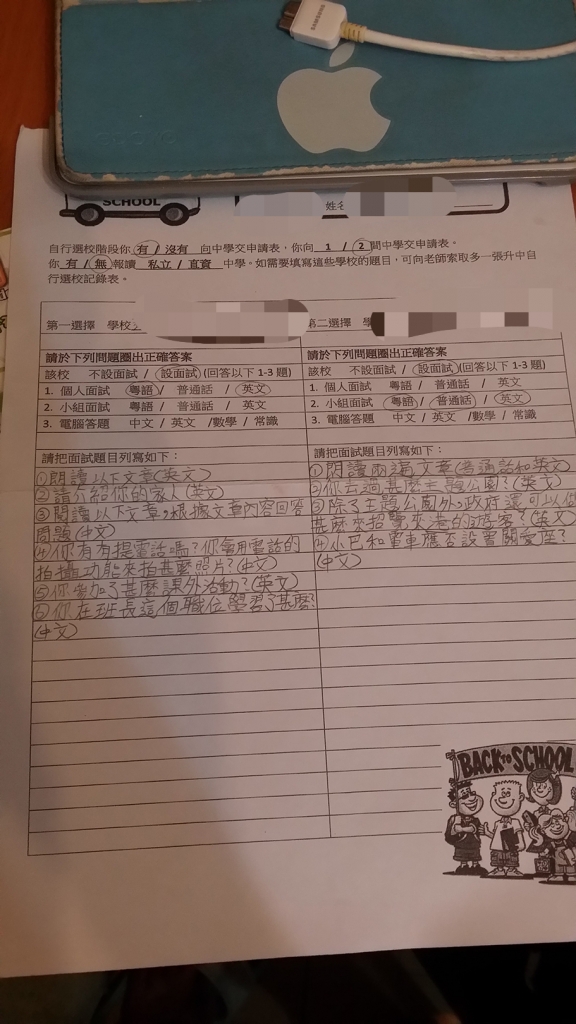 SAMSUNG
SCHOOL
姓名
自行選校階段你 有 / 沒有 向中學交申請表,你向 1 / 2 間中學交申請表。
你 有 / 無 報讀 私立 / 直資 中學。如需要填寫這些學校的題目,可向老師索取多一張升中自
行選校記錄表。
第一選擇 學校
請於下列問題圈出正確答案
該校 不設面試 / 設面試 (回答以下 1-3 題)
1. 個人面試 粵語 / 普通話 / 英文
2. 小組面試 粵語 / 普通話 / 英文
3. 電腦答題 中文 / 英文 /數學 / 常識
請把面試題目列寫如下:
①朗讀以下文章(英文)
②請介紹你的家人(英文)
③閱讀以下文章,根據文章內容回答
問題(中文)
④你有有提電話嗎?你會用電話的
拍攝功能來拍甚麼照片?(中文)
⑤你參加了甚麼課外活動?(英文)
⑥你在班長這個職位學習了甚麼?
(中文)
第二選擇
請於下列問題圈出正確答案
該校 不設面試 / 設面試 (回答以下 1-3 題)
1. 個人面試 粵語 / 普通話 / 英文
2. 小組面試 粵語 / 普通話 / 英文
3. 電腦答題 中文 / 英文 /數學 / 常識
請把面試題目列寫如下:
①朗讀兩篇文章(普通話和英文)
②你去過甚麼主題公園?(英文)
③除了主題公園外,政府還可以做
甚麼來招覽來港的遊客?(英文)
④小巴和電車應否設置關愛座?
(中文)
BACK TO SCHOOL